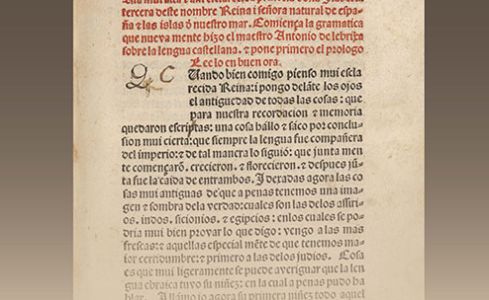 tercera deste nombre Reina i señora natural de espa
ña & las islas ð nuestro mar. Comiença la gramatica
que nueva mente hizo el maestro Antonio de lebrixa
sobre la lengua castellana. & pone primero el prologo
Leelo en buen ora.
C Uando bien comigo pienso mui escla
recida Reina: i pongo delãte los ojos
el antiguedad de todas las cosas: que
para nuestra recordacion & memoria
quedaron escriptas: una cosa hállo & sáco por conclu
sion mui cierta: que siempre la lengua fue compañera
del imperio: & de tal manera lo siguió: que junta men
te começarõ. crecieron. & florecieron. & despues jũ
ta fue la caida de entrambos. I dexadas agora las co
sas mui antiguas de que a penas tenemos una ima
gen & sombra dela verdad: cuales son las delos assiri
os. indos. sicionios. & egipcios: enlos cuales se po
dria mui bien provar lo que digo: vengo a las mas
frescas: & aquellas especial mẽte de que tenemos ma
ior certidumbre: & primero a las delos judios. Cosa
es que mui ligeramente se puede averiguar que la len
gua ebraica tuvo su niñez: en la cual a penas pudo ha
blar. I llámo io agora su primera niñez todo